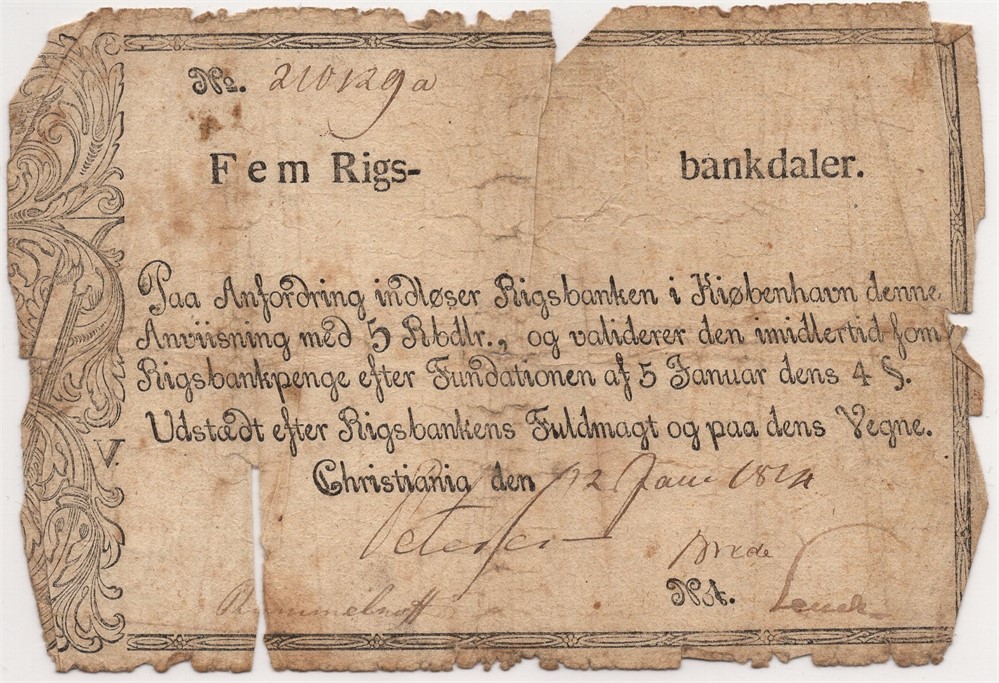 No. 210129a
Fem Rigs- bankdaler.
Paa Anfordring indløser Rigsbanken i Kiøbenhavn denne
Anviisning med 5 Rbdlr., og validerer den imidlertid som
Rigsbankpenge efter Fundationen af 5 Januar dens 4 §.
V. Udstædt efter Rigsbankens Fuldmagt og paa dens Vegne.
Christiania den 12 Janu 1814
NA.